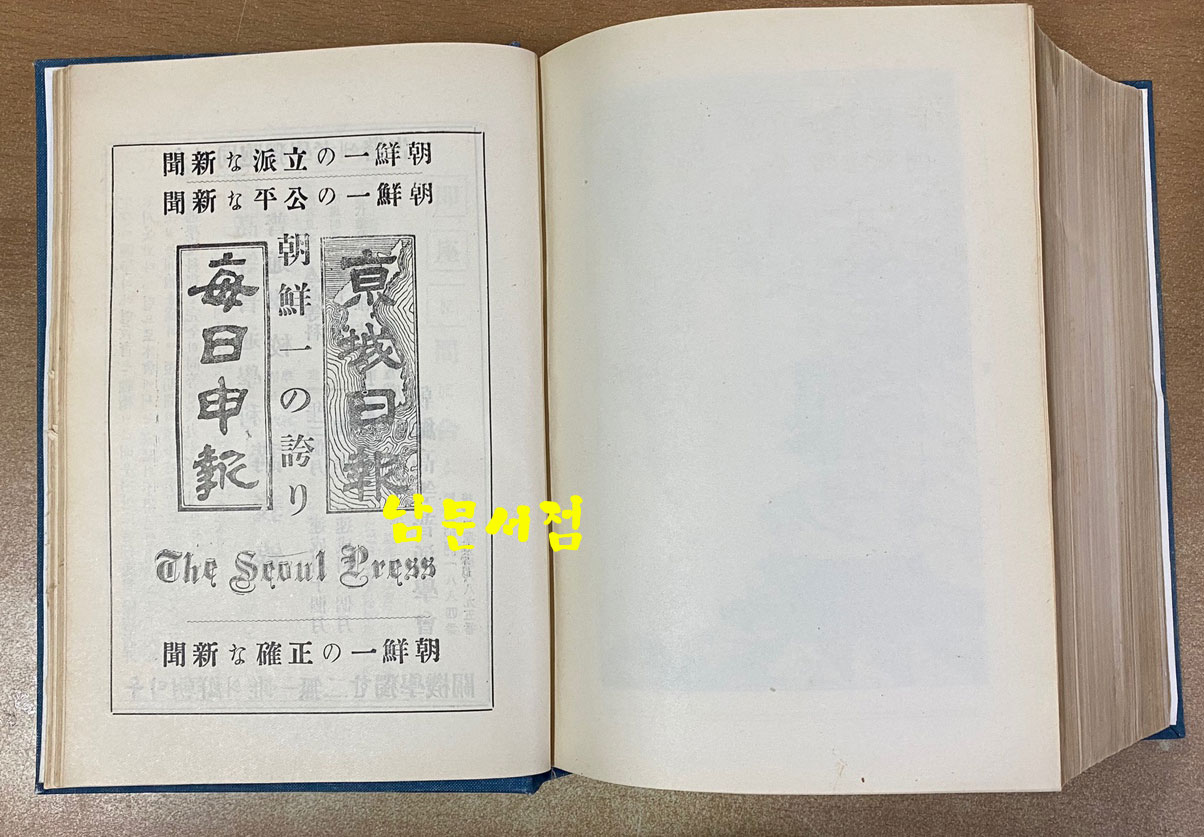 朝鮮一の立派な新聞
朝鮮一の公平な新聞
京城日報
朝鮮一の誇り
每日申報
The Seoul Press
朝鮮一の正確な新聞
남문서점